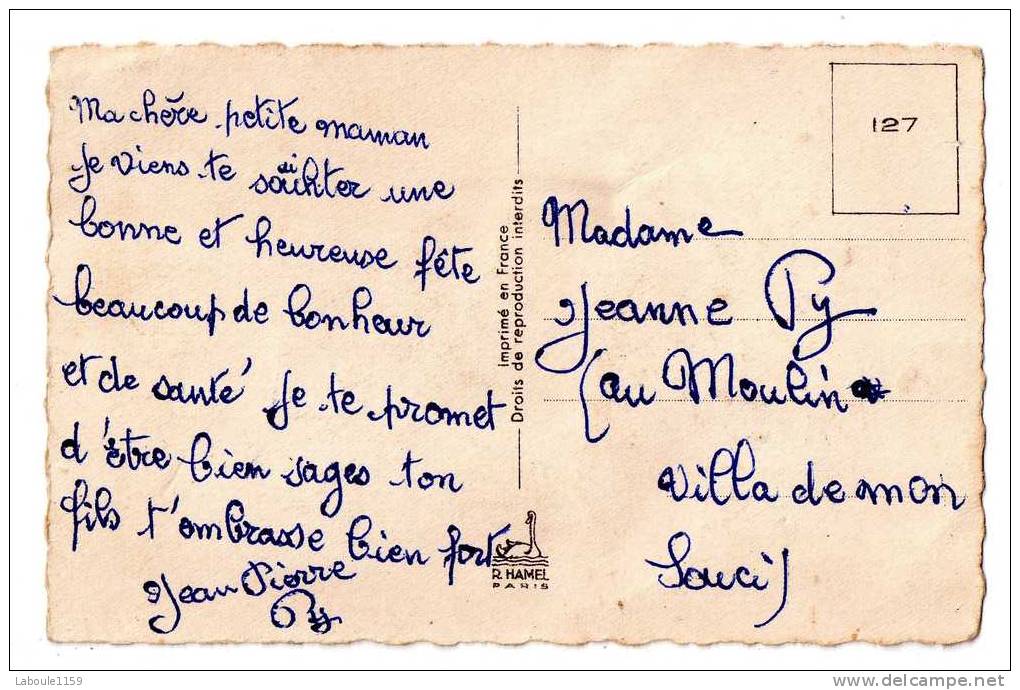 Ma chère petite maman
je viens te souaihter une
bonne et heureuse fête
beaucoup de bonheur
et de santé je te promet
d'être bien sages ton
fils t'ombrasse bien fort
Jean Pierre
Py
Imprimé en France
Droits de reproduction interdits
R. HAMEL
PARIS
127
Madame
Jeanne Py
(au Moulin
Villa de mon
Souci)
Laboule1159
www.delcampe.net